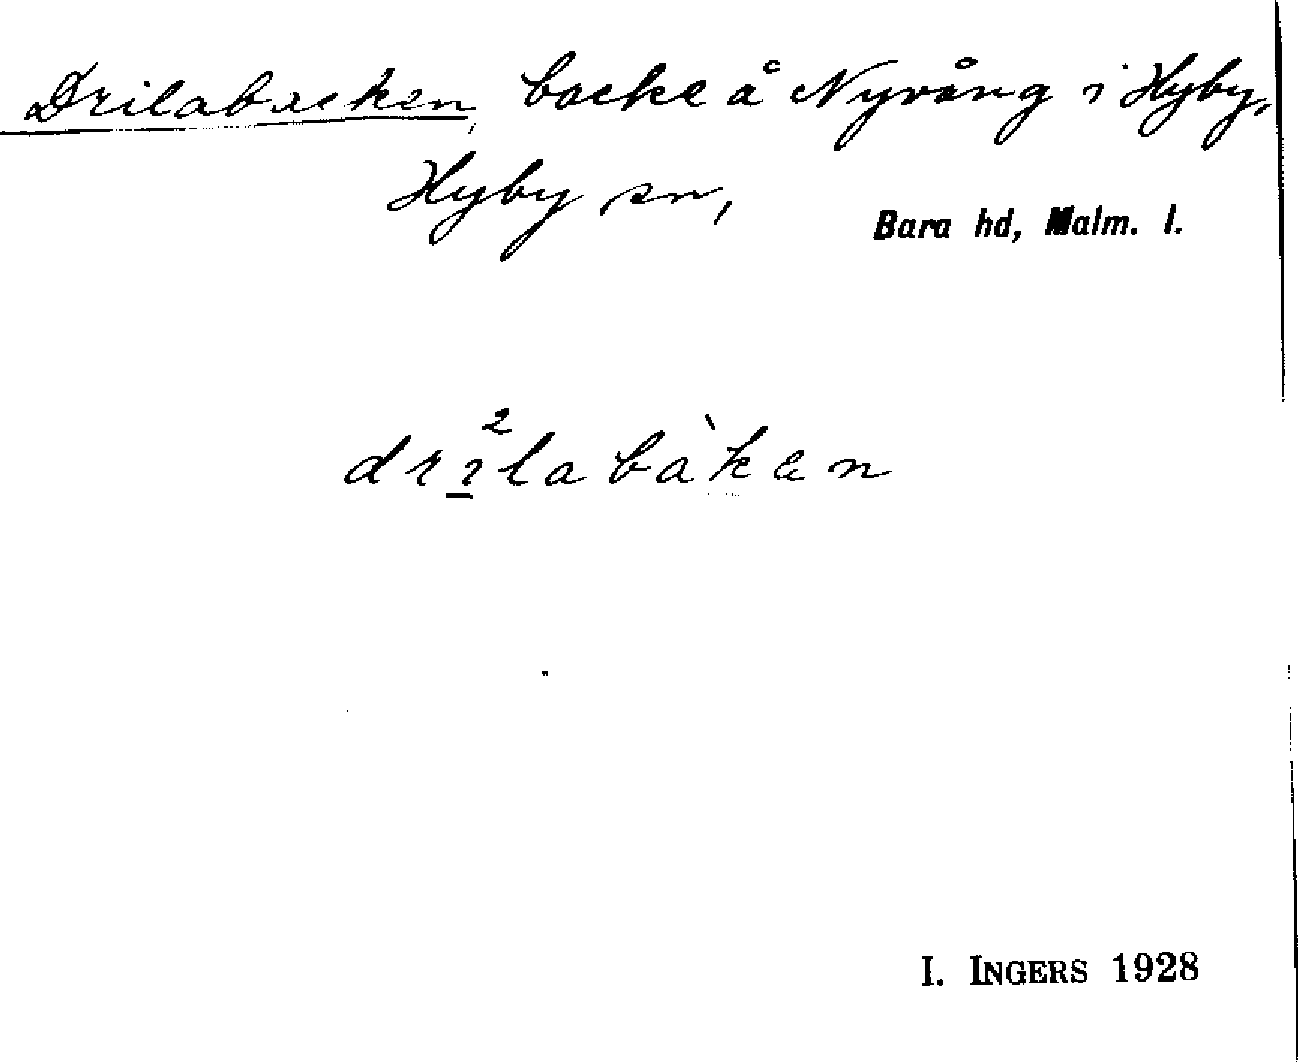 Drilabacken, backe å Nyvång i Hyby,
Hyby sn, Bara hd, Malm. l.
drı̲²labàken
I. INGERS 1928